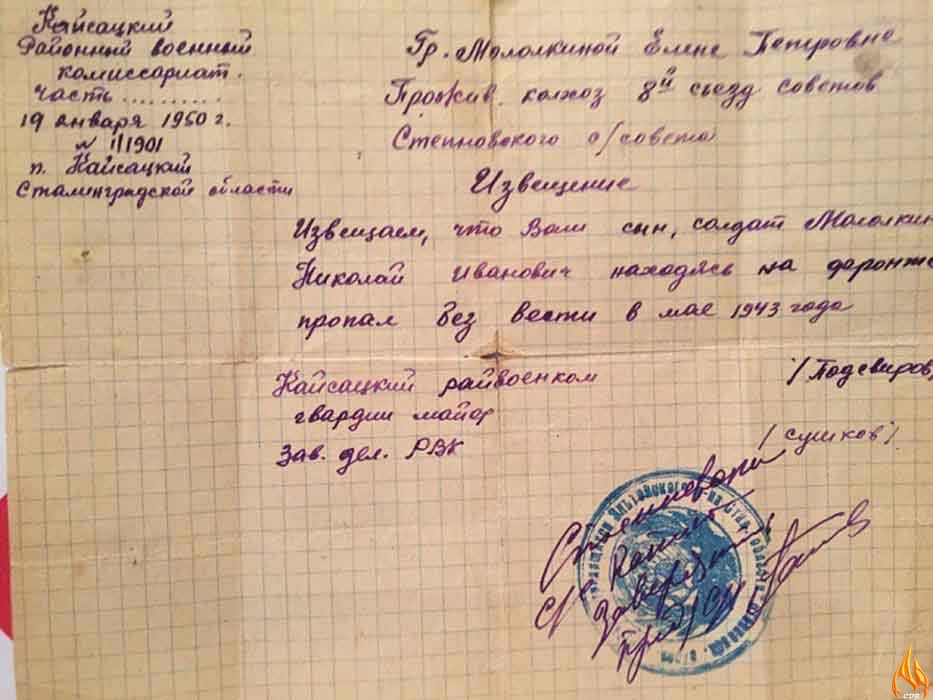 Кайсацкий
Районный военный
комиссариат.
часть ..........
19 января 1950 г.
№ 1/1901
п. Кайсацкий
Сталинградской области
Гр. Мололкиной Елене Петровне
Прожив. колхоз 8й съезд советов
Степновского с/совета
Извещение
Извещаем, что Ваш сын, солдат Мололкин
Николай Иванович находясь на фронте
пропал без вести в мае 1943 года
Кайсацкий райвоенком
гвардии майор
/Подсвиров
Зав. дел. РВК
/сушков/
с копией
заверена